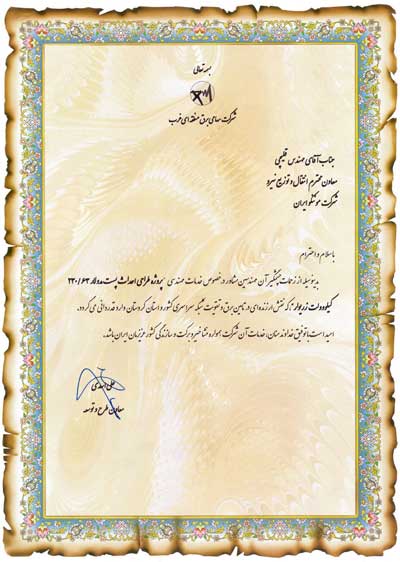 بسمه تعالی
شرکت سهامی برق منطقه ای غرب
جناب آقای مهندس قلیچی
معاون محترم انتقال و توزیع نیرو
شرکت موننکو ایران
با سلام و احترام
بدینوسیله از زحمات پیگیر آن مهندسین مشاور در خصوص خدمات مهندسی پروژه طراحی احداث پست مدولار ۲۳۰/۶۳
کیلوولت زریوار که نقش ارزنده ای در تامین برق و تقویت شبکه سراسری کشور و استان کردستان دارد قدردانی می گردد.
امید است با توفیق خداوند منان، خدمات آن شرکت همواره منشا خیر و برکت و سازندگی کشور عزیزمان ایران باشد.
علی اسدی
معاون طرح و توسعه